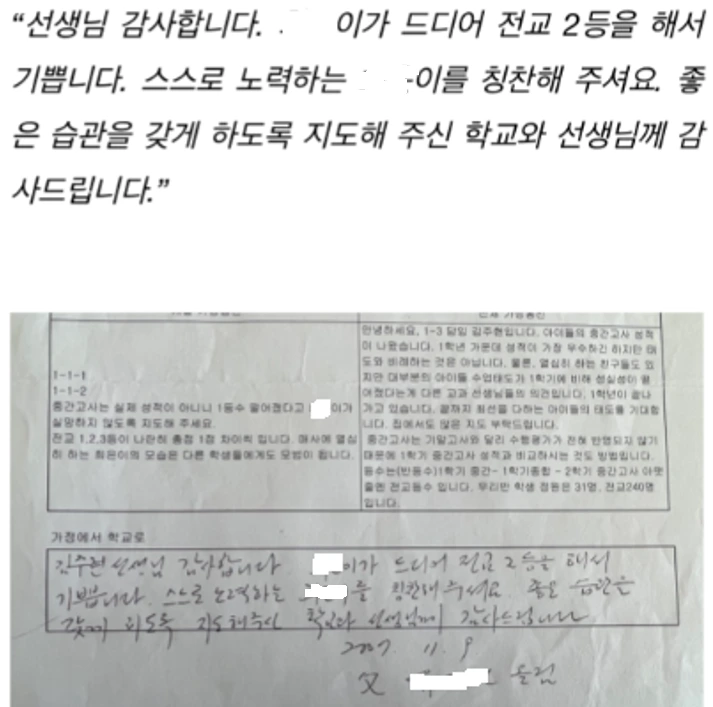 “선생님 감사합니다. 이가 드디어 전교 2등을 해서
기쁩니다. 스스로 노력하는 이를 칭찬해 주셔요. 좋
은 습관을 갖게 하도록 지도해 주신 학교와 선생님께 감
사드립니다.”
1-1-1
1-1-2
중간고사는 실제 성적이 아니니 1등수 떨어졌다고 이가
실망하지 않도록 지도해 주세요.
전교 1,2,3등이 나란히 총점 1점 차이씩 입니다. 매사에 열심
히 하는 최은이의 모습은 다른 학생들에게도 모범이 됩니다.
안녕하세요, 1-3 담임 김주현입니다. 아이들의 중간고사 성적
이 나왔습니다. 1학년 가운데 성적이 가장 우수하긴 하지만 태
도와 비례하는 것은 아닙니다. 물론, 열심히 하는 친구들도 있
지만 대부분의 아이들 수업태도가 1학기에 비해 성실성이 떨
어졌다는게 다른 교과 선생님들의 의견입니다. 1학년이 끝나
가고 있습니다. 끝까지 최선을 다하는 아이들의 태도를 기대합
니다. 집에서도 많은 지도 부탁드립니다.
중간고사는 기말고사와 달리 수행평가가 전혀 반영되지 않기
때문에 1학기 중간고사 성적과 비교하시는 것도 방법입니다.
등수는(반등수)1학기 중간- 1학기종합 - 2학기 중간고사 아랫
줄엔 전교등수 입니다. 우리반 학생 정원은 31명, 전교240명
입니다.
가정에서 학교로
김주현 선생님 감사합니다 이가 드디어 전교 2등을 해서
기쁩니다. 스스로 노력하는 를 칭찬해 주셔요. 좋은 습관을
갖게 하도록 지도해주신 학교와 선생님께 감사드립니다
2007. 11. 9
父 올림